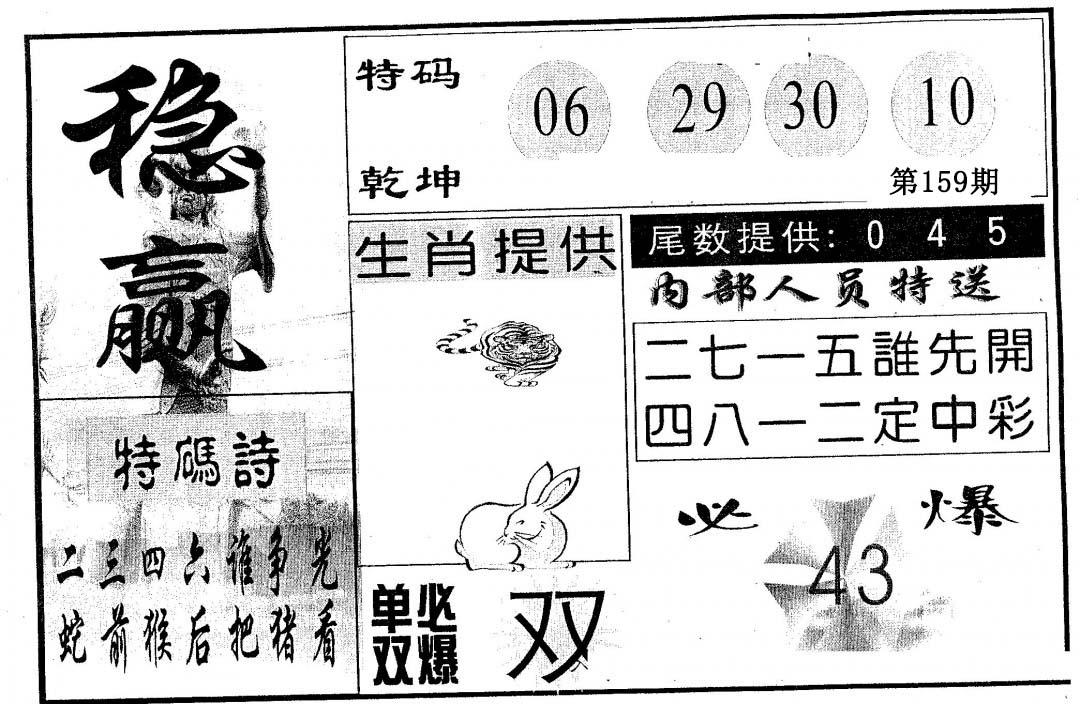 稳
赢
特码
乾坤
06 29 30 10
第159期
生肖提供
尾数提供: 0 4 5
内部人员特送
二七一五誰先開
四八一二定中彩
特碼詩
二三四六谁争光
蛇前猴后把猪看
单双
必爆
双
必爆
43